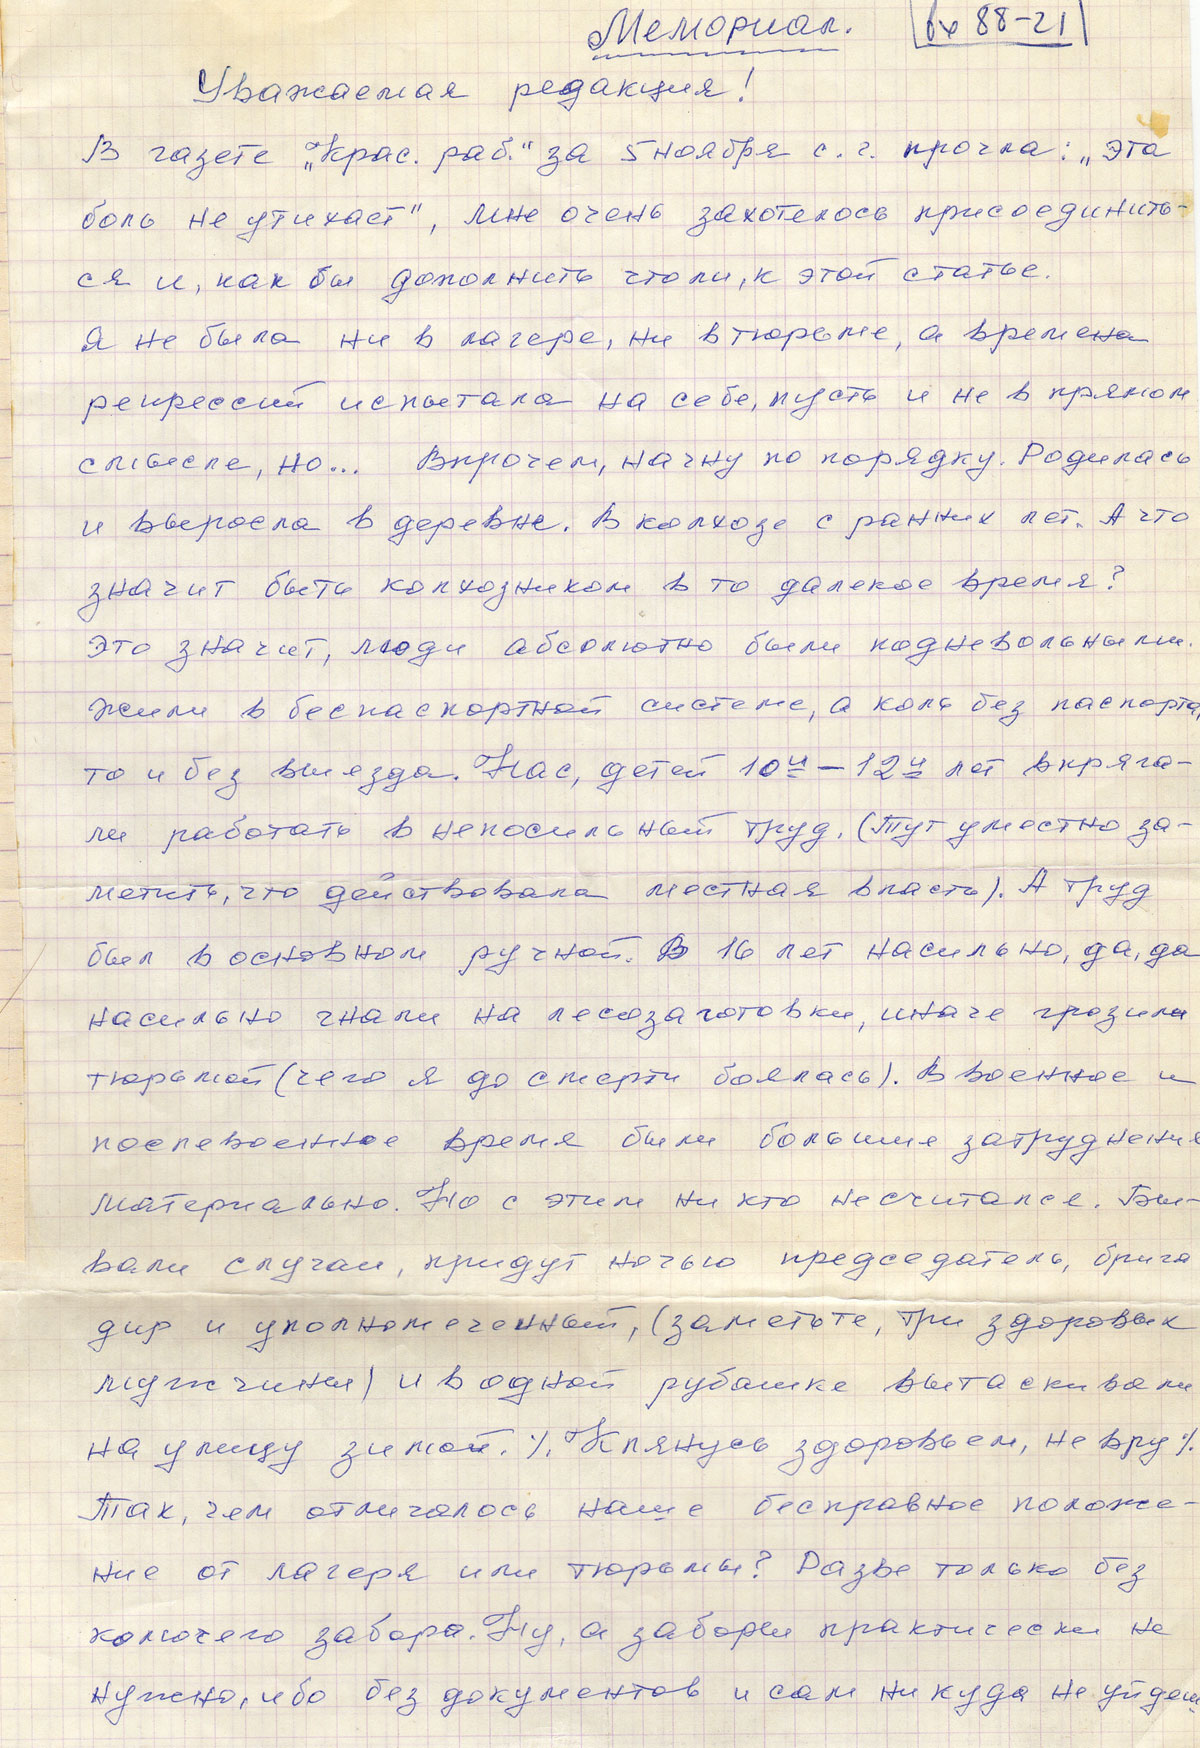 Мемориал. вх 88-21
Уважаемая редакция!
В газете „Крас. раб." за 5 ноября с. г. прочла: „Эта
боль не утихает", мне очень захотелось присоединить-
ся и, как бы дополнить что ли, к этой статье.
Я не была ни в лагере, ни в тюрьме, а времена
репрессий испытала на себе, пусть и не в прямом
смысле, но... Впрочем, начну по порядку. Родилась
и выросла в деревне. В колхозе с ранних лет. А что
значит быть колхозником в то далекое время?
Это значит, люди абсолютно были подневольными.
Жили в беспаспортной системе, а коль без паспорта,
то и без выезда. Нас, детей 10и – 12и лет впряга-
ли работать в непосильный труд. (Тут уместно за-
метить, что действовала местная власть). А труд
был в основном ручной. В 16 лет насильно, да, да
насильно гнали на лесозаготовки, иначе грозили
тюрьмой (чего я до смерти боялась). В военное и
послевоенное время были большие затруднения
материально. Но с этим ни кто несчитался. Бы-
вали случаи, придут ночью председатель, брига
дир и уполномеченный, (заметьте, три здоровых
мужчины) и в одной рубашке вытаскивали
на улицу зимой. %. Клянусь здоровьем, не вру %.
Так, чем отличалось наше бесправное положе-
ние от лагеря или тюрьмы? Разве только без
колючего забора. Ну, а заборы практически не
нужно, ибо без документов и сам ни куда не уйдеш.